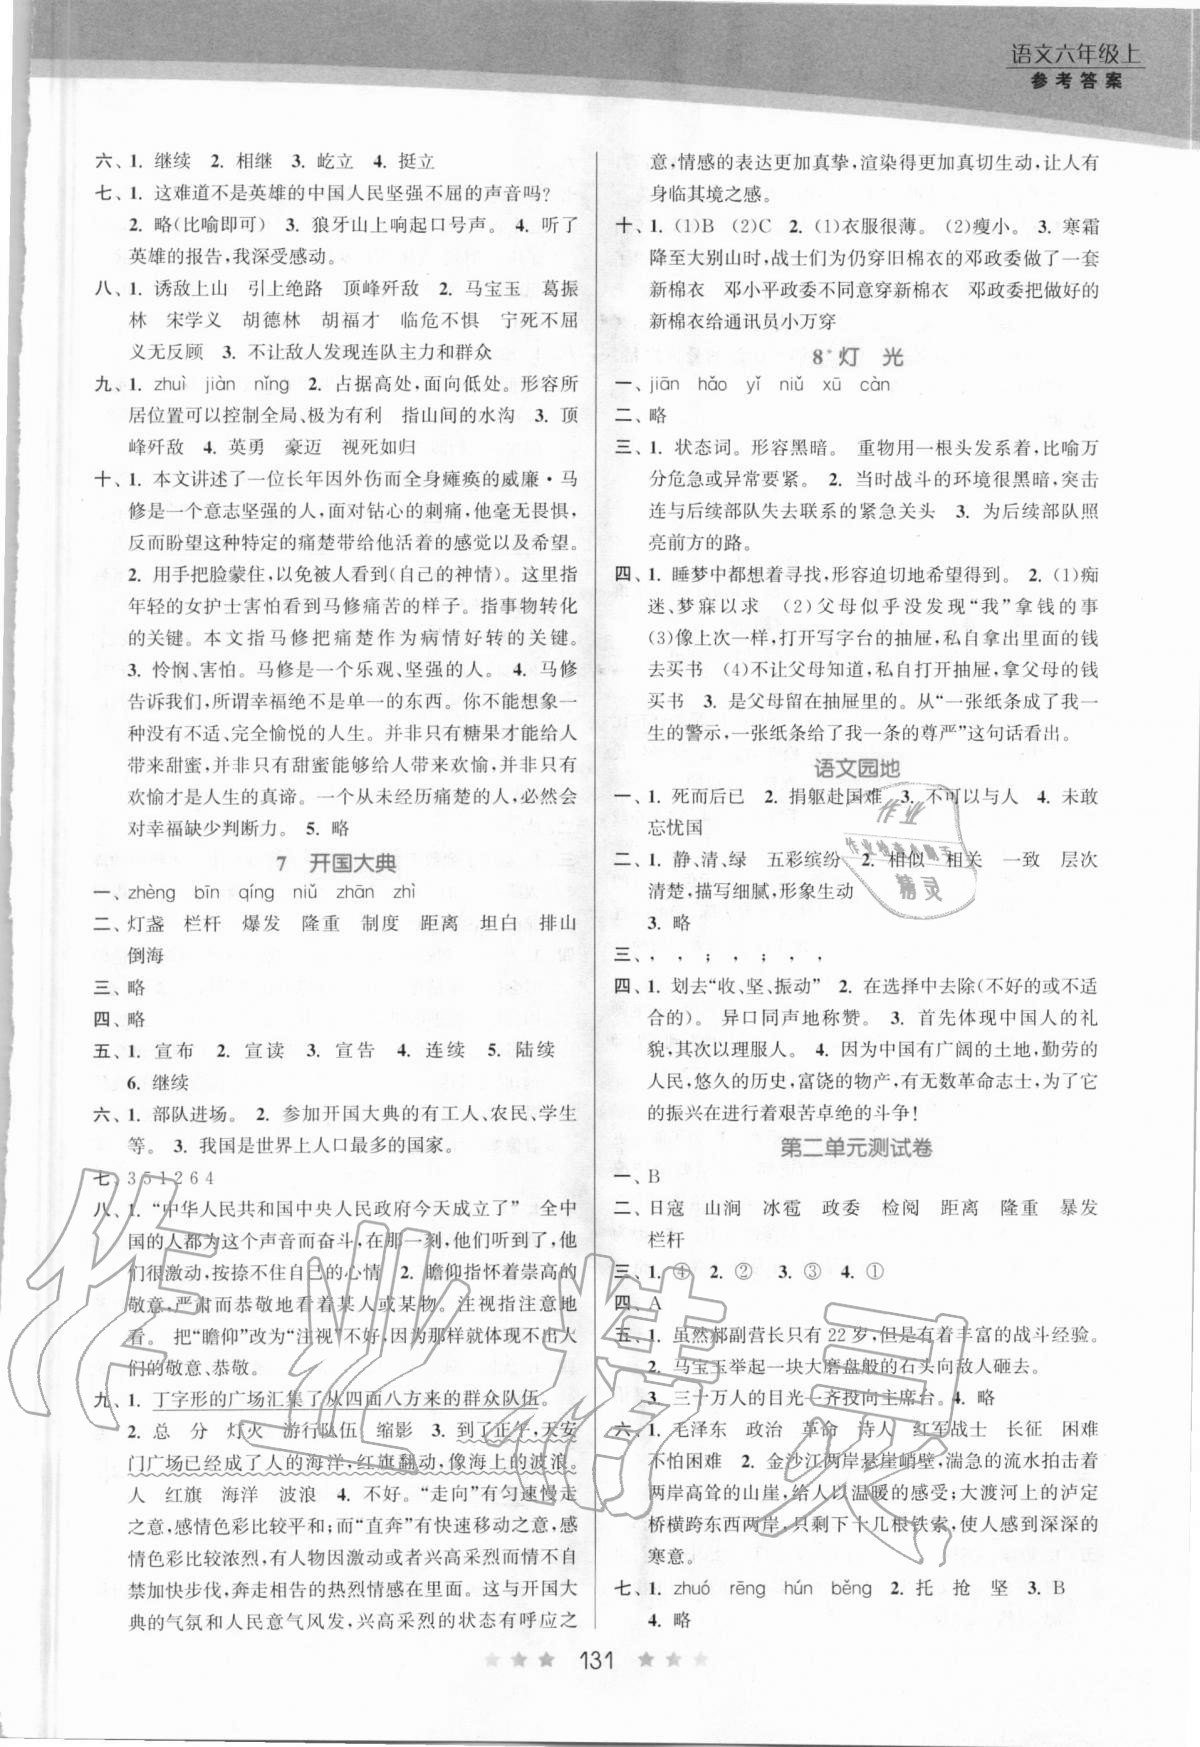 语文六年级上
参考答案
六、1. 继续 2. 相继 3. 屹立 4. 挺立
七、1. 这难道不是英雄的中国人民坚强不屈的声音吗?
2. 略(比喻即可) 3. 狼牙山上响起口号声。 4. 听了
英雄的报告,我深受感动。
八、1. 诱敌上山 引上绝路 顶峰歼敌 2. 马宝玉 葛振
林 宋学义 胡德林 胡福才 临危不惧 宁死不屈
义无反顾 3. 不让敌人发现连队主力和群众
九、1. zhuì jiàn nǐng 2. 占据高处,面向低处。形容所
居位置可以控制全局、极为有利 指山间的水沟 3. 顶
峰歼敌 4. 英勇 豪迈 视死如归
十、1. 本文讲述了一位长年因外伤而全身瘫痪的威廉·马
修是一个意志坚强的人,面对钻心的刺痛,他毫无畏惧,
反而盼望这种特定的痛楚带给他活着的感觉以及希望。
2. 用手把脸蒙住,以免被人看到(自己的神情)。这里指
年轻的女护士害怕看到马修痛苦的样子。指事物转化
的关键。本文指马修把痛楚作为病情好转的关键。
3. 怜悯、害怕。马修是一个乐观、坚强的人。 4. 马修
告诉我们,所谓幸福绝不是单一的东西。你不能想象一
种没有不适、完全愉悦的人生。并非只有糖果才能给人
带来甜蜜,并非只有甜蜜能给人带来欢愉,并非只有
欢愉才是人生的真谛。一个从未经历痛楚的人,必然会
对幸福缺少判断力。 5. 略
7 开国大典
一、zhèng bīn qíng niǔ zhān zhì
二、灯盏 栏杆 爆发 隆重 制度 距离 坦白 排山
倒海
三、略
四、略
五、1. 宣布 2. 宣读 3. 宣告 4. 连续 5. 陆续
6. 继续
六、1. 部队进场。 2. 参加开国大典的有工人、农民、学生
等。 3. 我国是世界上人口最多的国家。
七、3 5 1 2 6 4
八、1. “中华人民共和国中央人民政府今天成立了” 全中
国的人都为这个声音而奋斗,在那一刻,他们听到了,他
们很激动,按捺不住自己的心情 2. 瞻仰指怀着崇高的
敬意,严肃而恭敬地看着某人或某物。注视指注意地
看。 把“瞻仰”改为“注视”不好,因为那样就体现不出人
们的敬意、恭敬。
九、1. 丁字形的广场汇集了从四面八方来的群众队伍。
2. 总 分 灯火 游行队伍 缩影 3. 到了正午,天安
门广场已经成了人的海洋,红旗翻动,像海上的波浪。
人 红旗 海洋 波浪 4. 不好。“走向”有匀速慢走
之意,感情色彩比较平和;而“直奔”有快速移动之意,感
情色彩比较浓烈,有人物因激动或者兴高采烈而情不自
禁加快步伐、奔走相告的热烈情感在里面。这与开国大
典的气氛和人民意气风发,兴高采烈的状态有呼应之
意,情感的表达更加真挚,渲染得更加真切生动,让人有
身临其境之感。
十、1. (1)B (2)C 2. (1)衣服很薄。(2)瘦小。 3. 寒霜
降至大别山时,战士们为仍穿旧棉衣的邓政委做了一套
新棉衣 邓小平政委不同意穿新棉衣 邓政委把做好的
新棉衣给通讯员小万穿
8* 灯 光
一、jiān hǎo yǐ niǔ xū càn
二、略
三、1. 状态词。形容黑暗。 重物用一根头发系着,比喻万
分危急或异常要紧。 2. 当时战斗的环境很黑暗,突击
连与后续部队失去联系的紧急关头 3. 为后续部队照
亮前方的路。
四、1. 睡梦中都想着寻找,形容迫切地希望得到。 2. (1)痴
迷、梦寐以求 (2)父母似乎没发现“我”拿钱的事
(3)像上次一样,打开写字台的抽屉,私自拿出里面的钱
去买书 (4)不让父母知道,私自打开抽屉,拿父母的钱
买书 3. 是父母留在抽屉里的。从“一张纸条成了我一
生的警示,一张纸条给了我一条的尊严”这句话看出。
语文园地
一、1. 死而后已 2. 捐躯赴国难 3. 不可以与人 4. 未敢
忘忧国
二、1. 静、清、绿 五彩缤纷 2. 相似 相关 一致 层次
清楚,描写细腻,形象生动
3. 略
三、, , ; , ; , ,
四、1. 划去“收、坚、振动” 2. 在选择中去除(不好的或不适
合的)。 异口同声地称赞。 3. 首先体现中国人的礼
貌,其次以理服人。 4. 因为中国有广阔的土地,勤劳的
人民,悠久的历史,富饶的物产,有无数革命志士,为了它
的振兴在进行着艰苦卓绝的斗争!
第二单元测试卷
一、B
二、日寇 山涧 冰雹 政委 检阅 距离 隆重 暴发
栏杆
三、1. ④ 2. ② 3. ③ 4. ①
四、A
五、1. 虽然郝副营长只有 22 岁,但是有着丰富的战斗经验。
2. 马宝玉举起一块大磨盘般的石头向敌人砸去。
3. 三十万人的目光一齐投向主席台。 4. 略
六、1. 毛泽东 政治 革命 诗人 红军战士 长征 困难
不怕困难 2. 金沙江两岸悬崖峭壁,湍急的流水拍击着
两岸高耸的山崖,给人以温暖的感受;大渡河上的泸定
桥横跨东西两岸,只剩下十几根铁索,使人感到深深的
寒意。
七、1. zhuó rēng hún běng 2. 托 抢 坚 3. B
4. 略
131
作业精灵
作业
精灵